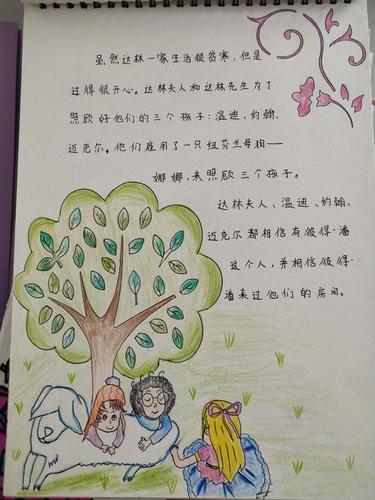 虽然达林一家生活很贫寒，但是
过得很开心。达林夫人和达林先生为了
照顾好他们的三个孩子：温迪、约翰、
迈克尔，他们雇用了一只纽芬兰母狗——
娜娜，来照顾三个孩子。
达林夫人、温迪、约翰、
迈克尔都相信有彼得·潘
这个人，并相信彼得·
潘来过他们的房间。